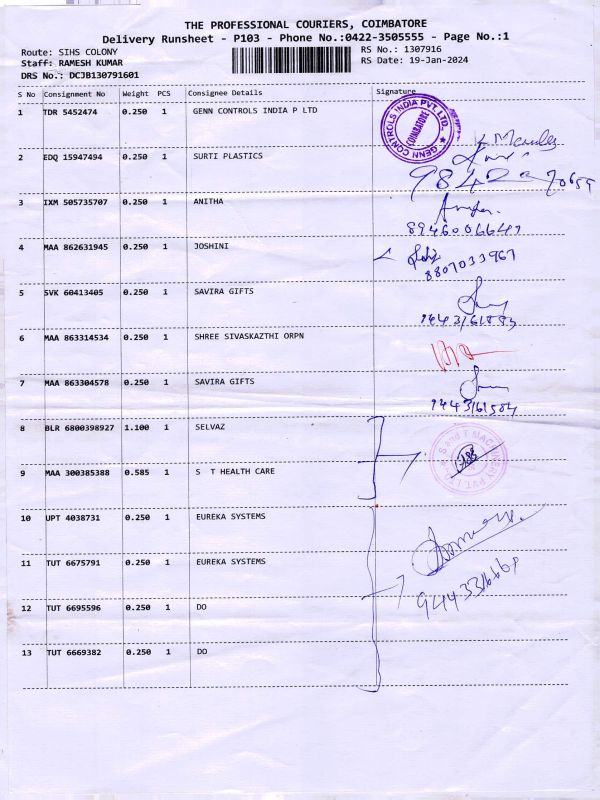 THE PROFESSIONAL COURIERS, COIMBATORE
Delivery Runsheet - P103 - Phone No.:0422-3505555 - Page No.:1
Route: SIHS COLONY RS No.: 1307916
Staff: RAMESH KUMAR RS Date: 19-Jan-2024
DRS No.: DCJB130791601
S No Consignment No Weight PCS Consignee Details Signature
1 TDR 5452474 0.250 1 GENN CONTROLS INDIA P LTD
GENN CONTROLS INDIA PVT. LTD. COIMBATORE
2 EDQ 15947494 0.250 1 SURTI PLASTICS
3 IXM 505735707 0.250 1 ANITHA
8946006647
4 MAA 862631945 0.250 1 JOSHINI
8807033967
5 SVK 60413405 0.250 1 SAVIRA GIFTS
6 MAA 863314534 0.250 1 SHREE SIVASKAZTHI ORPN
7 MAA 863304578 0.250 1 SAVIRA GIFTS
9443161584
8 BLR 6800398927 1.100 1 SELVAZ
S and T MACHINERY PVT. LTD.
9 MAA 300385388 0.585 1 S T HEALTH CARE
10 UPT 4038731 0.250 1 EUREKA SYSTEMS
11 TUT 6675791 0.250 1 EUREKA SYSTEMS
12 TUT 6695596 0.250 1 DO
13 TUT 6669382 0.250 1 DO